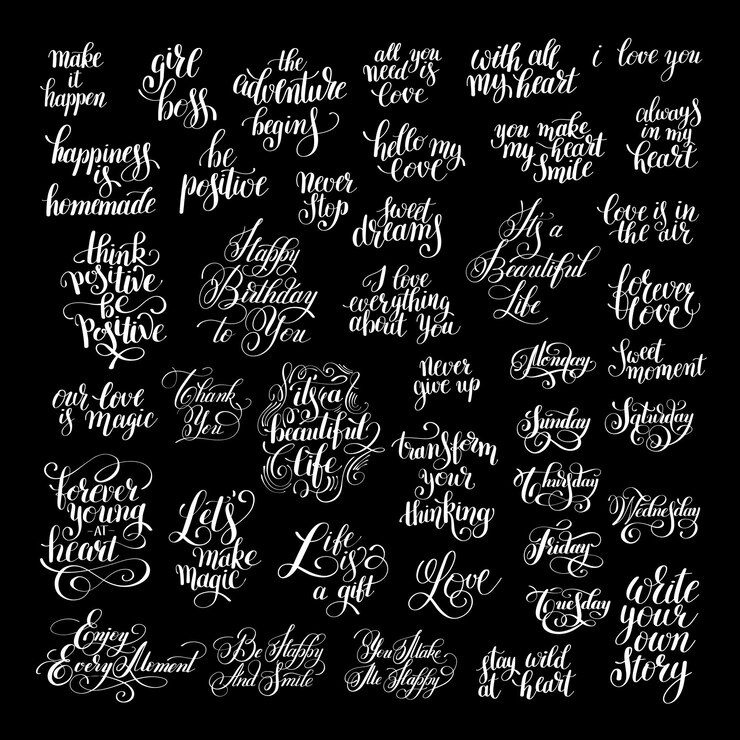 make
it
happen
girl
boss
the
adventure
begins
all you
need is
love
with all
my heart
i love you
happiness
is
homemade
be
positive
never
stop
hello my
love
you make
my heart
smile
always
in my
heart
think
positive
be
Positive
Happy
Birthday
to You
sweet
dreams
I love
everything
about you
It's a
Beautiful
Life
love is in
the air
forever
love
our love
is magic
Thank
You
it's a
beautiful
life
never
give up
Monday
Sweet
moment
Sunday
Saturday
transform
your
thinking
Thursday
Wednesday
Friday
Tuesday
forever
young
-AT-
heart
Let's
make
magic
Life
is
a gift
Love
write
your
own
Story
Enjoy
Every Moment
Be Happy
And Smile
You Make
Me Happy
stay wild
at heart